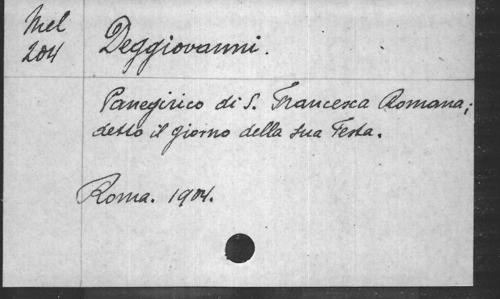 Mel
204
Deggiovanni.
Panegirico di S. Francesca Romana;
detto il giorno della sua Festa.
Roma. 1904.